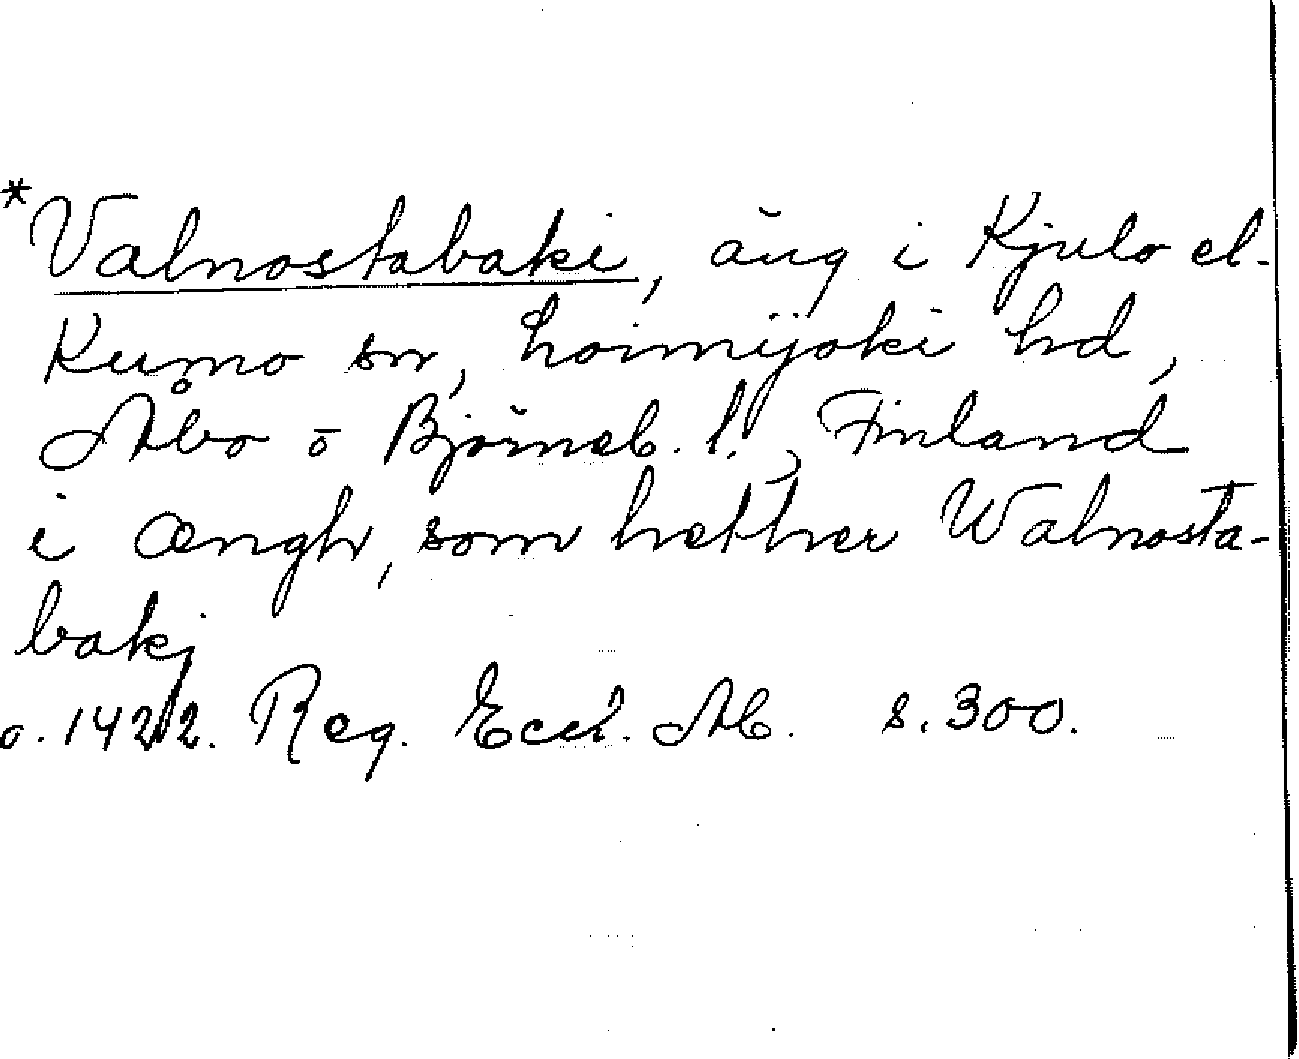 *Valnostabaki, äng i Kjulo el.
Kumo sn, Loimijoki hd,
Åbo o Björneb. l., Finland
i ængh, som hether Walnosta-
bakj
o. 1422. Reg. Eccl. Ab. s. 300.